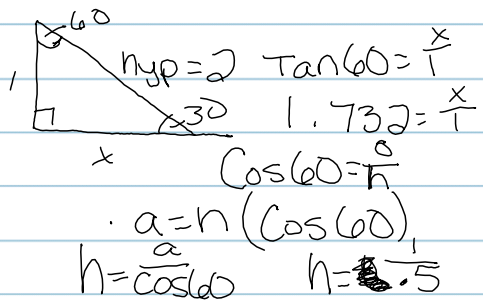 60
hyp=2 Tan60=x/1
1 30 1.732=x/1
x
Cos60=a/h
a=h(Cos60)
h=a/cos60 h=1/.5